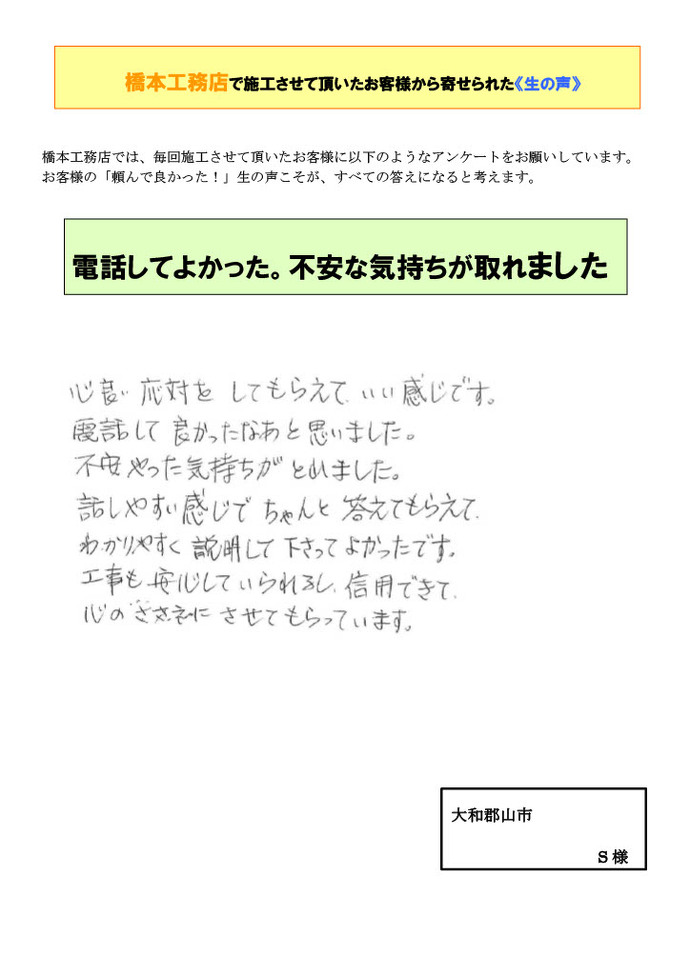 橋本工務店で施工させて頂いたお客様から寄せられた《生の声》
橋本工務店では、毎回施工させて頂いたお客様に以下のようなアンケートをお願いしています。
お客様の「頼んで良かった！」生の声こそが、すべての答えになると考えます。
電話してよかった。不安な気持ちが取れました
心良い 応対を してもらえて、いい感じです。
電話して 良かったなあと思いました。
不安やった気持ちが とれました。
話しやすい感じで ちゃんと 答えてもらえて、
わかりやすく 説明して 下さって よかったです。
工事も 安心して いられるし、信用できて、
心の ささえに させてもらっています。
大和郡山市
S 様